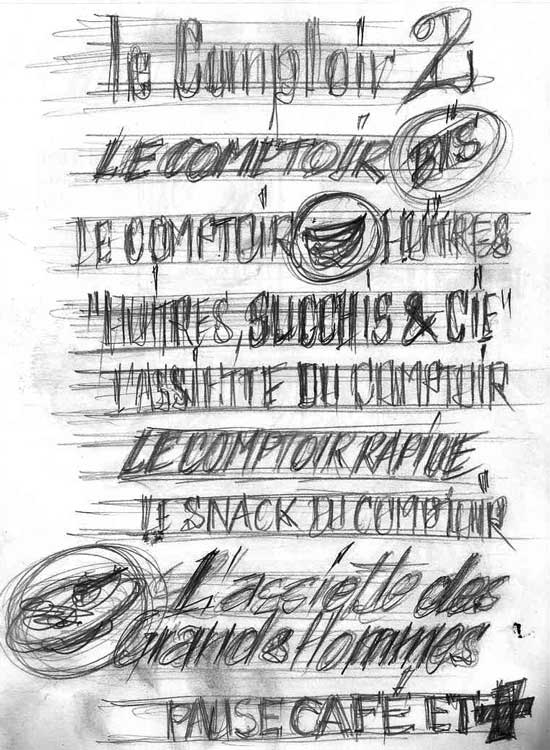 le Comptoir 2
LE COMPTOIR BIS
LE COMPTOIR HUÎTRES
"HUÎTRES, SUCCHIS & CIE"
L'ASSIETTE DU COMPTOIR
LE COMPTOIR RAPIDE
LE SNACK DU COMPTOIR
L'assiette des
Grands Hommes
PAUSE CAFÉ ET +